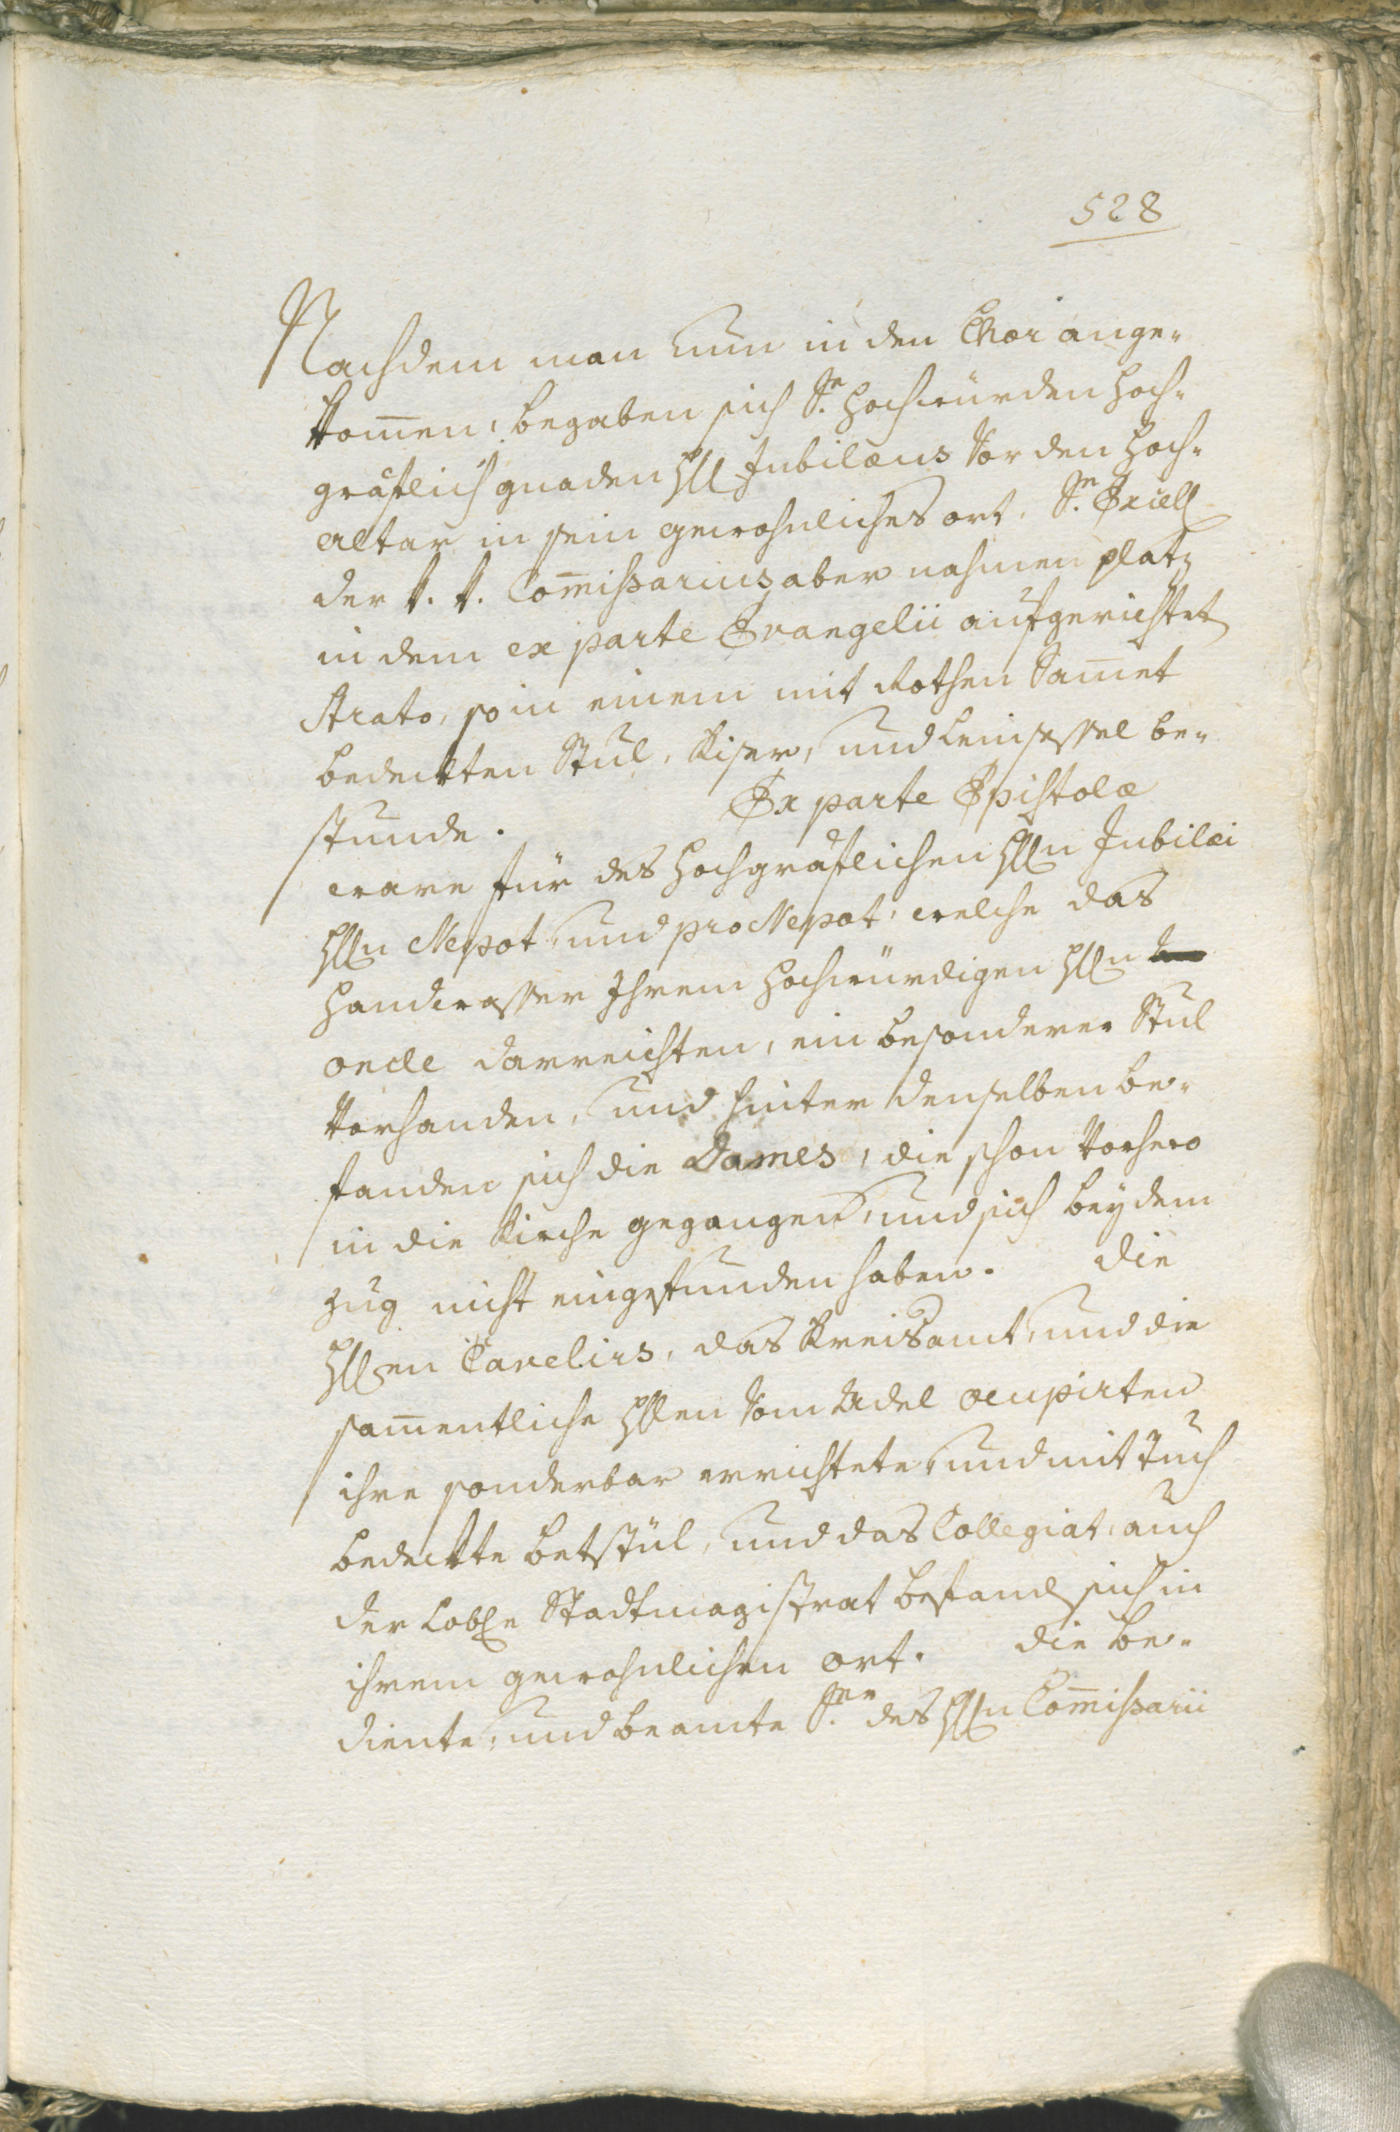 528
Nachdem man nun in den Chor ange-
kom̄en, begaben sich Se. Hochwürden hoch-
gräflich gnaden Hh Jubilæus vor den Hoch-
altar in sein gewohnliches ort. Se. Excell
der k. k. Com̄issarius aber nahmen platz
in dem ex parte Evangelii aufgerichtet
Strato, so in einem mit Rothen Sam̄et
bedeckten Stul, Kiser, und Leinsessel be-
stunde. Ex parte Epistolæ
ware für des Hochgräflichen Hhn Jubilæi
Hhn Nepot und proNepot, welche das
Handwasser Ihrem Hochwürdigen Hhn
oncle darreichten, ein besonderer Stul
vorhanden, und hinter denselben be-
fanden sich die Dames, die schon vorhero
in die Kirche gegangen, und sich bey dem
zug nicht eingefunden haben. Die
Hhen Cavelirs, das Kreisamt, und die
sam̄entliche Hhen vom Adel ocupirten
ihre sonderbar errichtete, und mit Tuch
bedeckte betstül, und das Collegiat, auch
der Lobl. Stadtmagistrat befand sich in
ihrem gewohnlichen ort. Die be-
diente, und beamte Sr. des Hhn Com̄issarii